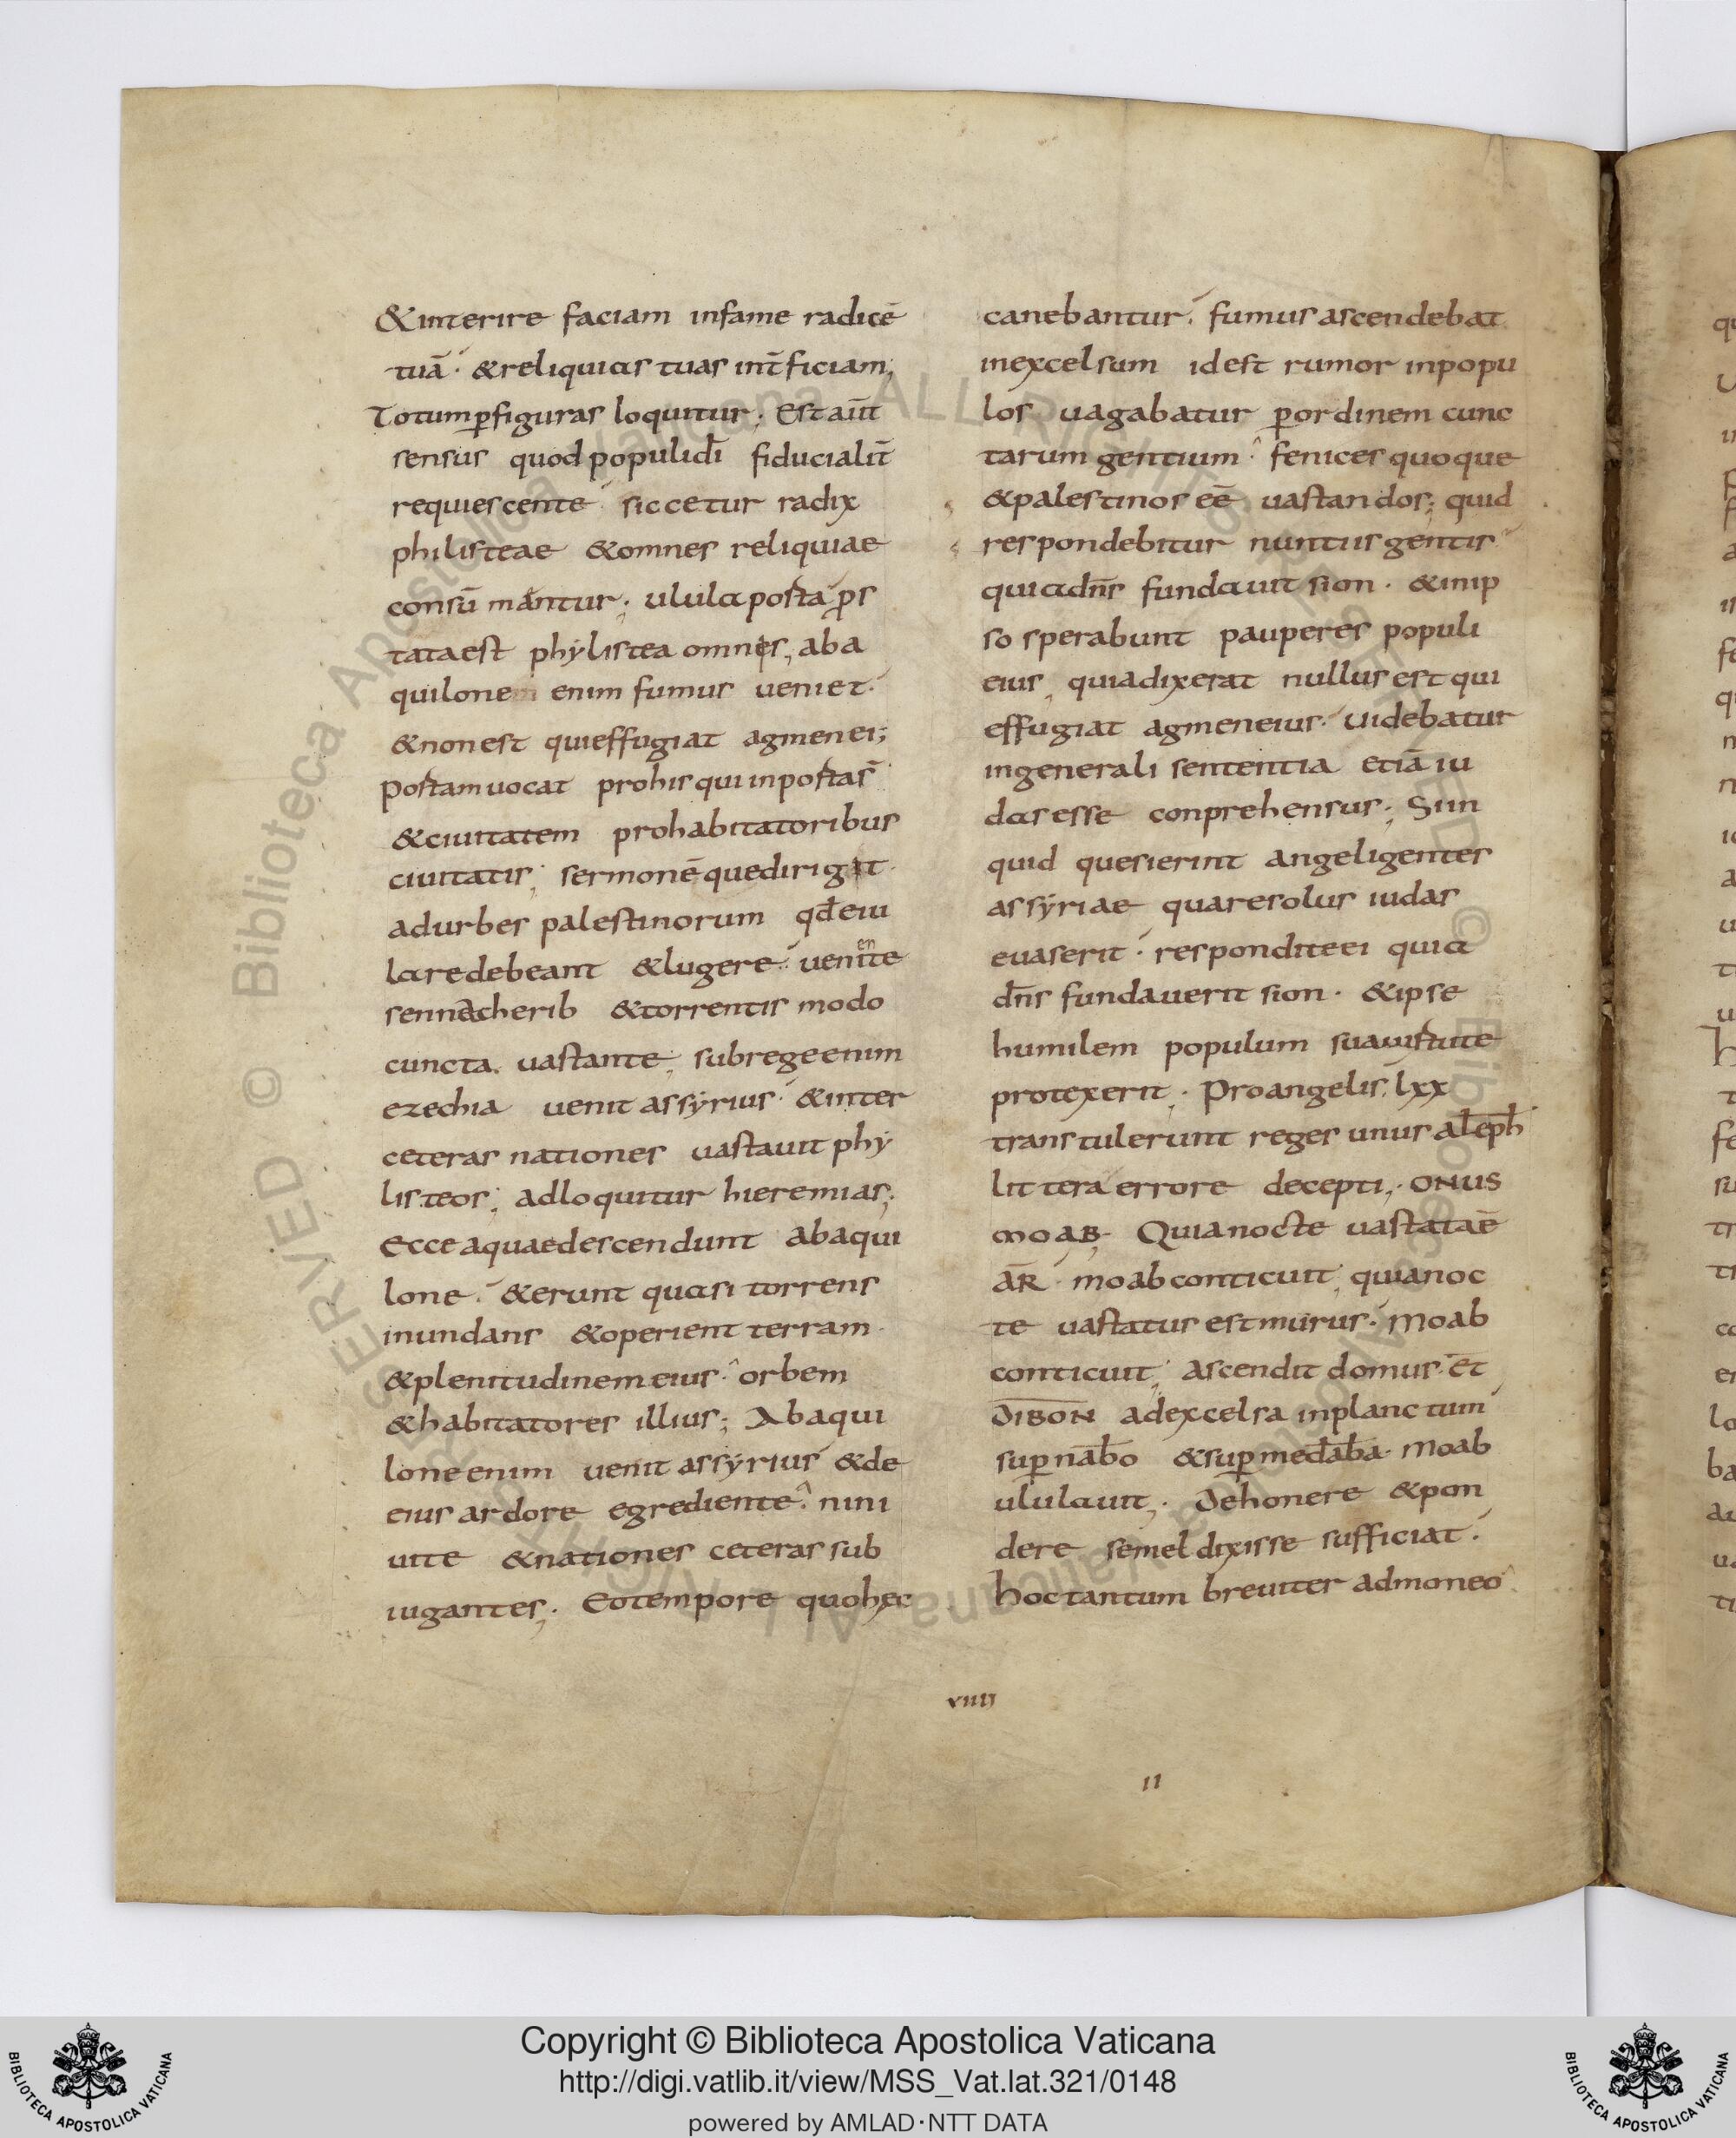 &interire faciam infame radicē
tuā· &reliquias tuas int̄ficiam;
Totum ꝑfiguras loquitur; Est aūt
sensus quod populidī fiducialit̄
requiescente siccetur radix
philisteae &omnes reliquiae
consūmantur; ulula porta ꝓs
tataest phylistea omnis, aba
quilone enim fumus ueniet·
&nonest quieffugiat agmen ei;
Portam uocat prohis qui inportas̄
&ciuitatem prohabitatoribus
ciuitatis; sermonē quedirigit
adurbes palestinorum qđeiu
laredebeant &lugere uenien̄te
sennacherib &torrentis modo
cuncta uastante, subregeenim
ezechia uenit assyrius· &inter
ceteras nationes uastauit phy
listeos; adloquitur hieremias;
Ecce aquaedescendunt abaqui
lone· &erunt quasi torrens
inundans &operient terram·
&plenitudinem eius· orbem
&habitatores illius; Abaqui
lone enim uenit assyrius &de
eius ardore egrediente· nini
uite &nationes ceteras sub
iugantes; Eotempore quohęc
canebantur· fumus ascendebat
inexcelsum idest rumor inpopu
los uagabatur ꝑordinem cunc
tarum gentium· fenices quoque
&palestinos eē uastandos; quid
respondebitur nuntiis gentis
quiadn̄s fundauit sion· &inip
so sperabunt pauperes populi
eius, quiadixerat nullus est qui
effugiat agmeneius· uidebatur
ingenerali sententia etiā iu
das esse conprehensus; Siin
quid quesierint angeligentes
assyriae quaresolus iudas
euaserit· respondite ei quia
dn̄s fundauerit sion· &ipse
humilem populum suauirtute
protexerit; Proangelis lxx
transtulerunt reges unus aleph
littera errore decepti; ONUS
MOAB; Quianocte uastataē
AR· moab conticuit, quianoc
te uastatus est murus· moab
conticuit; ascendit domus· et
DIBON adexcelsa inplanctum
suꝑ nabo &suꝑ medaba· moab
ululauit; Dehonere &pon
dere semel dixisse sufficiat·
hoctantum breuiter admoneo
viiii
11
Copyright © Biblioteca Apostolica Vaticana
http://digi.vatlib.it/view/MSS_Vat.lat.321/0148
powered by AMLAD·NTT DATA
BIBLIOTECA APOSTOLICA VATICANA
BIBLIOTECA APOSTOLICA VATICANA